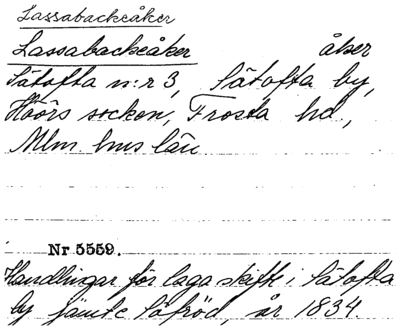 Lassabackeåker
Lassabackeåker åker
Sätofta n:r 3, Sätofta by,
Höörs socken, Frosta hd,
Mlm hus län
Nr 5559.
Handlingar för laga skifte i Sätofta
by jämte Löfröd, år 1834.